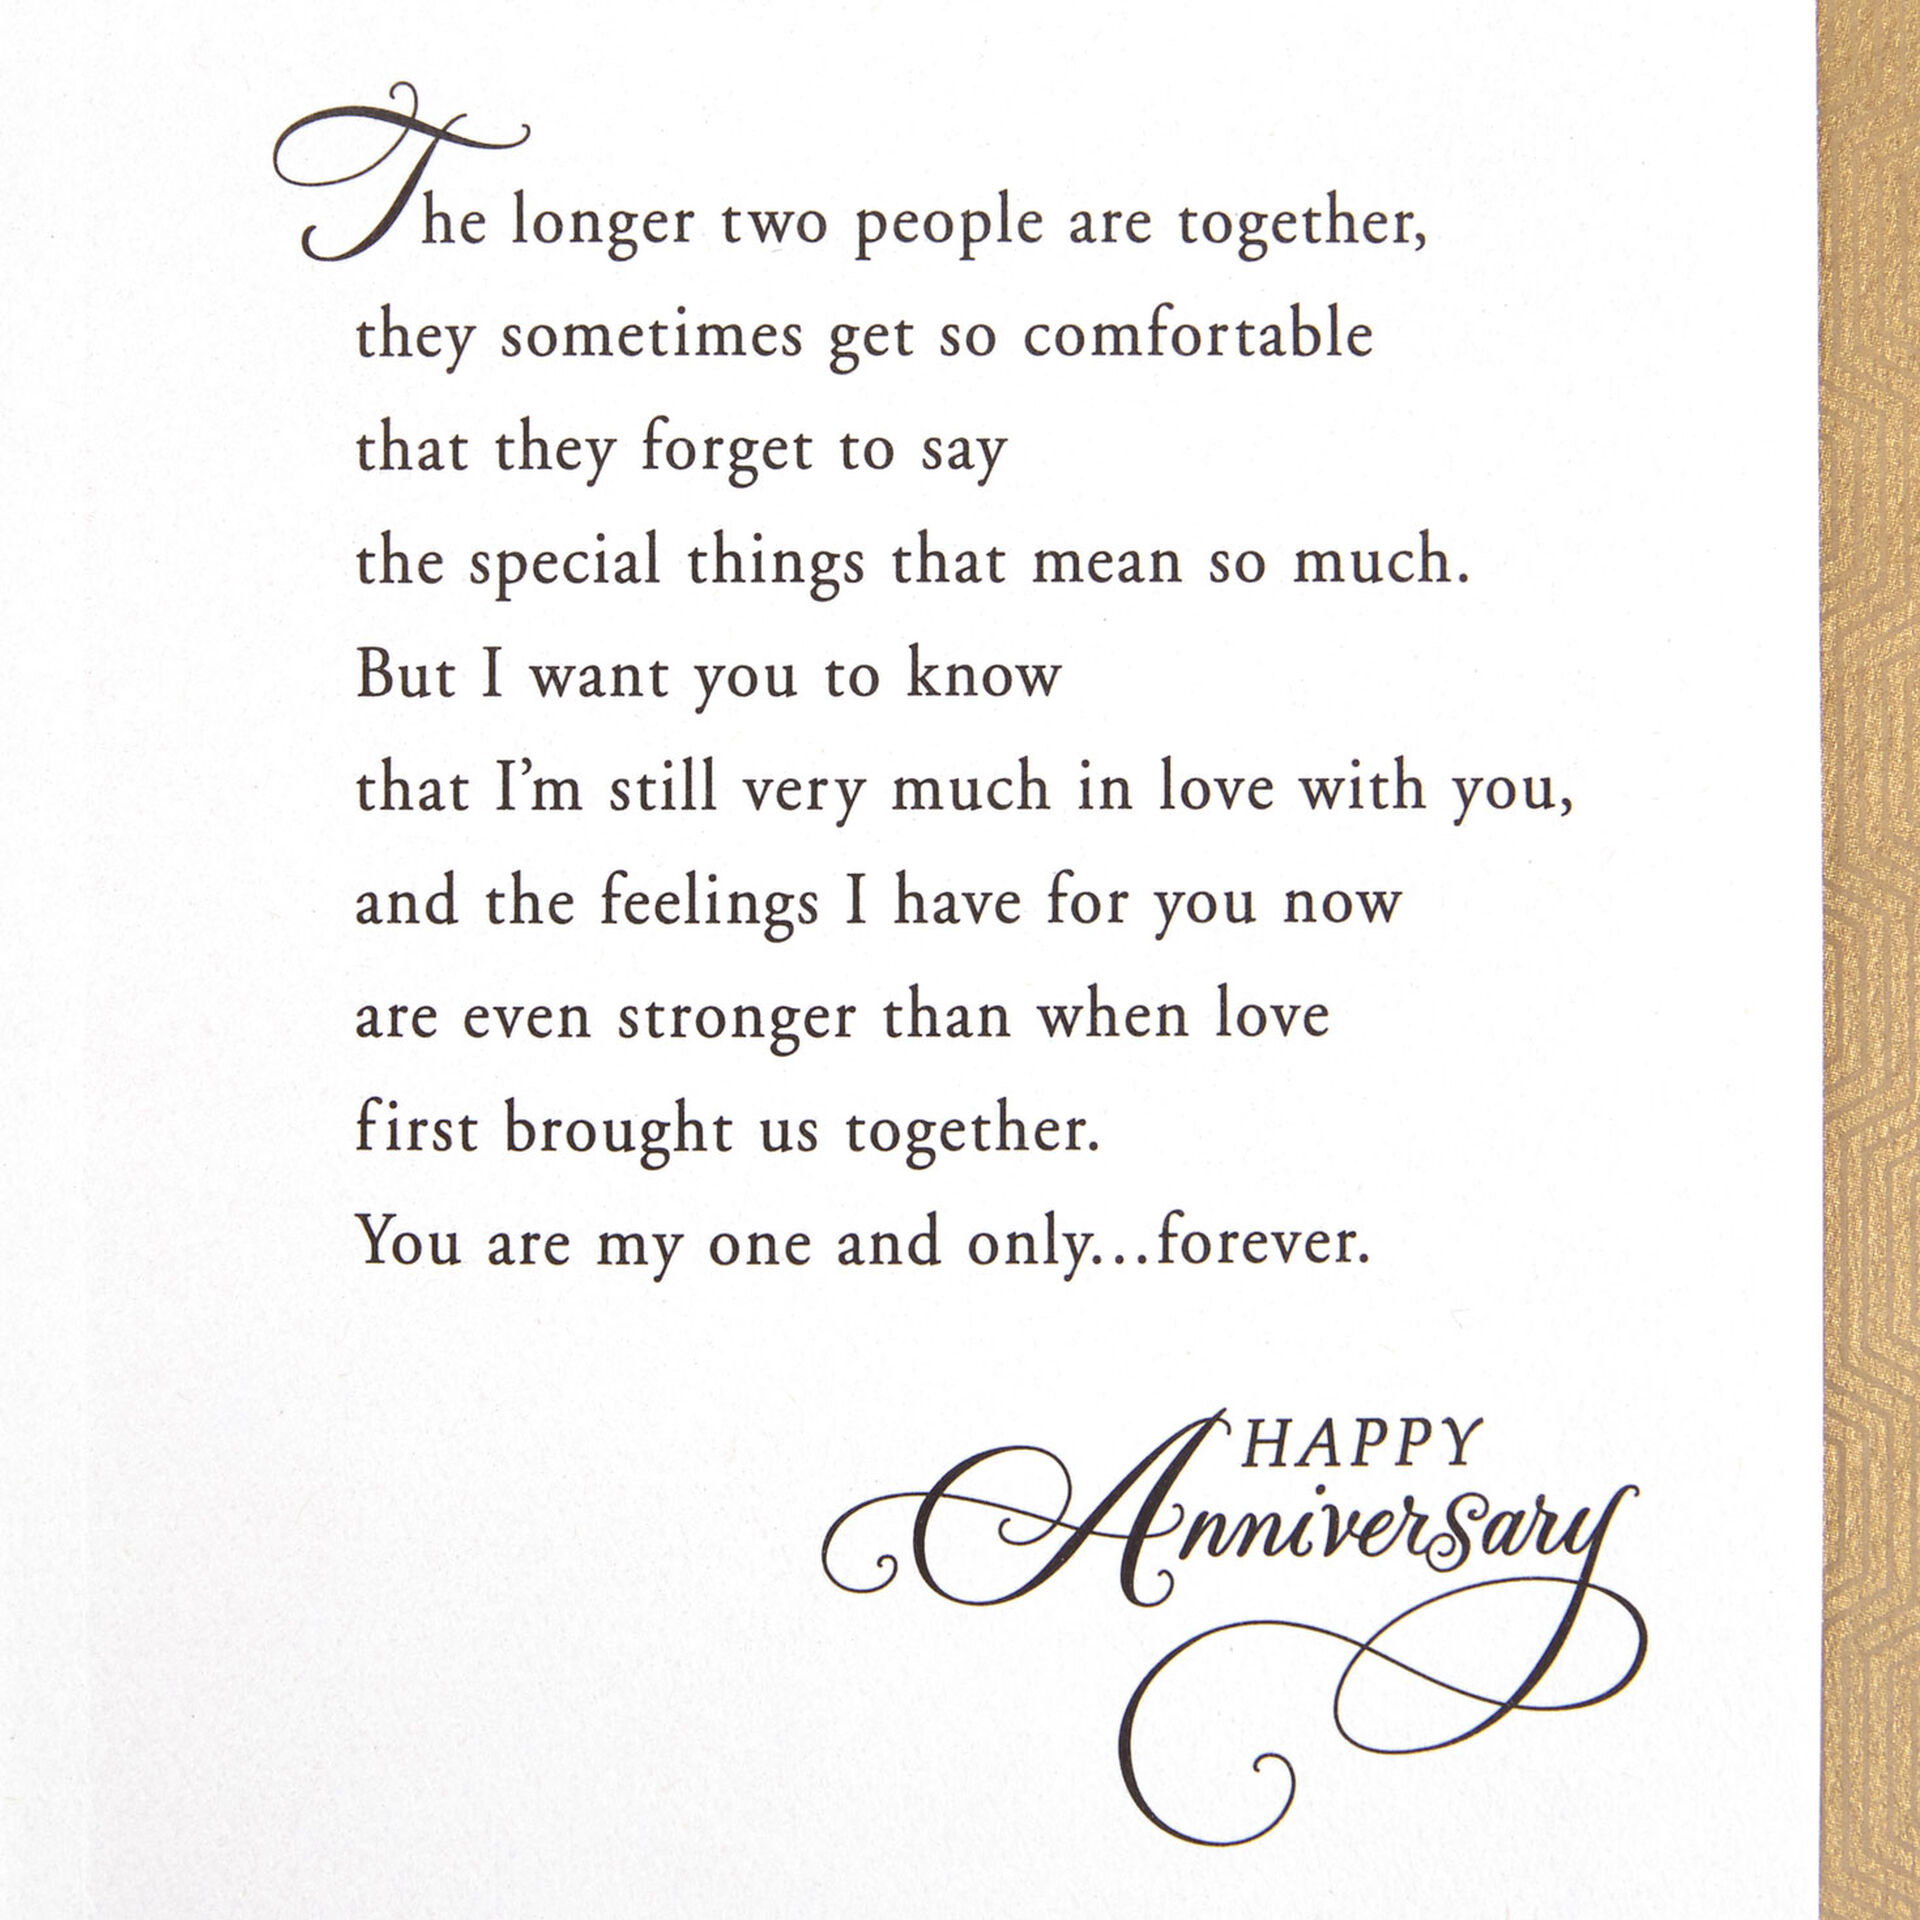 The longer two people are together,
they sometimes get so comfortable
that they forget to say
the special things that mean so much.
But I want you to know
that I’m still very much in love with you,
and the feelings I have for you now
are even stronger than when love
first brought us together.
You are my one and only...forever.
HAPPY
Anniversary